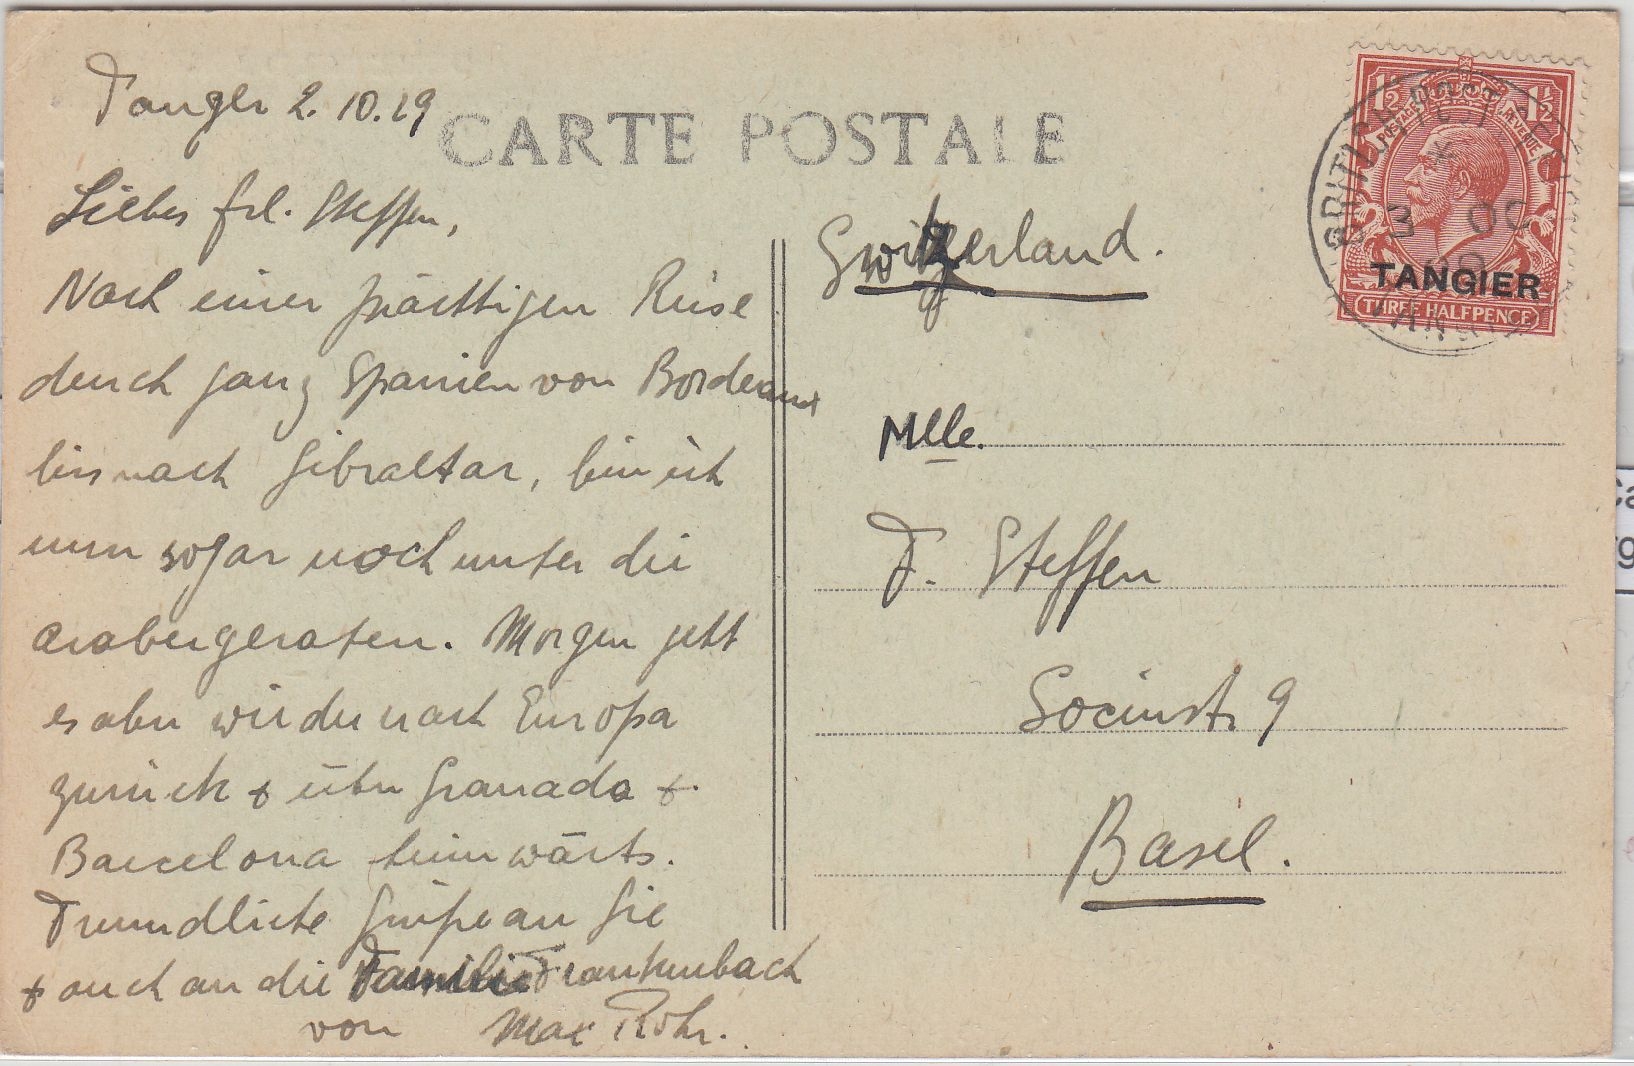 Tanger 2.10.29
CARTE POSTALE
Liebes Frl. Steffen,
Nach einer prächtigen Reise
durch ganz Spanien von Bordeaux
bis nach Gibraltar, bin ich
nun sogar noch unter die
Araber geraten. Morgen geht
es aber wieder nach Europa
zurück & über Granada &
Barcelona heimwärts.
Freundliche Grüße an Sie
& auch an die Familie Frankenbach
von Max Rohr.
Switzerland.
Mlle.
F. Steffen
Socinstr. 9
Basel.
1½ 1½
POSTAGE REVENUE
TANGIER
THREE HALFPENCE
BRITISH POST OFFICE
3 OC
29
TANGIER